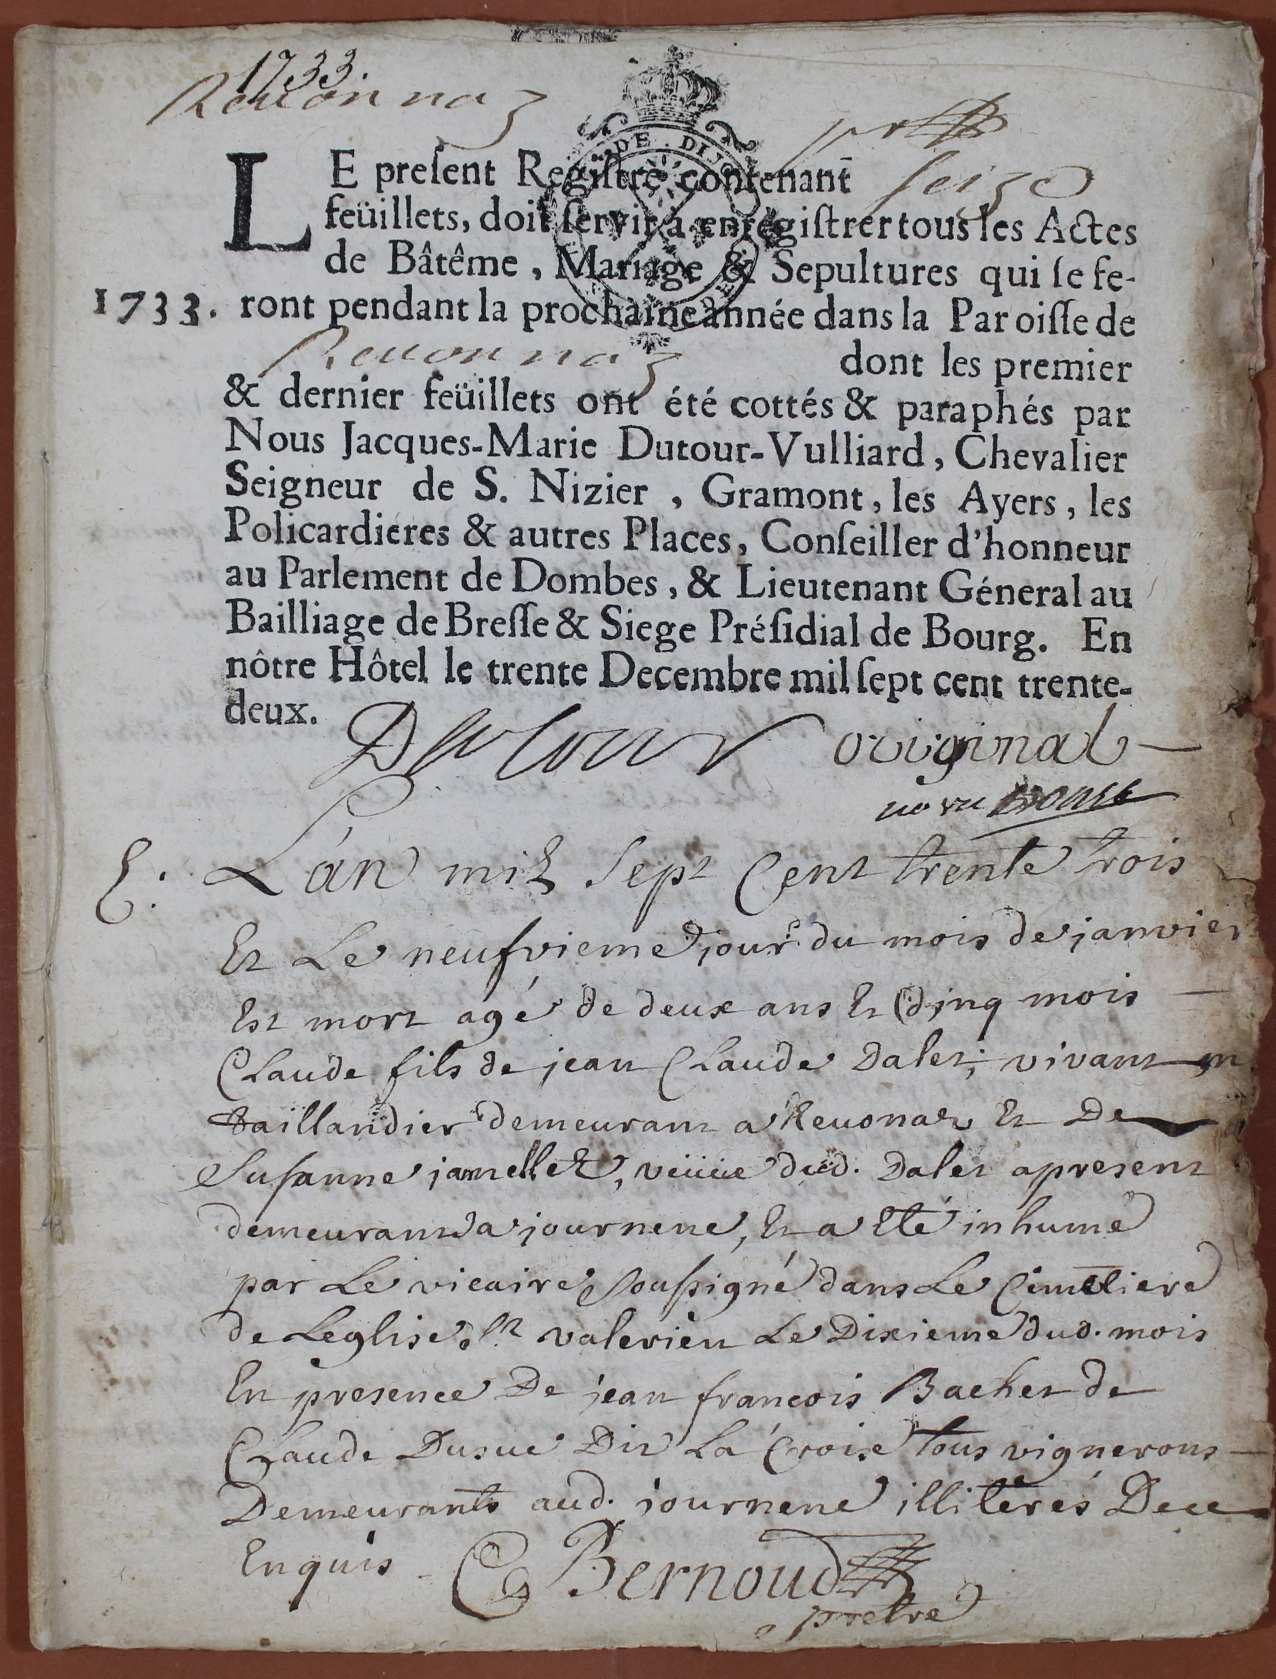 1733.
Reuonnaz
DE DIJON
LE preſent Regiſtre contenant̄ ſeize
feüillets, doit ſervir à enregiſtrer tous les Actes
de Bâtême, Mariage & Sepultures qui ſe fe-
1733. ront pendant la prochaine année dans la Paroiſſe de
Reuonnaz dont les premier
& dernier feüillets ont été cottés & paraphés par
Nous Jacques-Marie Dutour-Vulliard, Chevalier
Seigneur de S. Nizier, Gramont, les Ayers, les
Policardieres & autres Places, Conſeiller d'honneur
au Parlement de Dombes, & Lieutenant Géneral au
Bailliage de Breſſe & Siege Préſidial de Bourg. En
nôtre Hôtel le trente Decembre mil ſept cent trente-
deux.
Dutour original
E. L'án mil Sept Cent trente trois
Et Le neufvieme jour du mois de janvier
Est mort agé de deux ans Et Cinq mois
Claude fils de jean Claude Dalet; vivant
taillandier demeurant a Reuonaz Et De
Susanne jamellet, veüüe dud. Dalet apresent
demeurant a journene, Et a Eté inhumé
par Le vicaire soussigné dans Le Cimetiere
de Leglise st valerien Le Dixieme dud. mois
En presence De jean francois Bachet de
Claude Dusue Dit La Croix tous vignerons
Demeurants aud. journene illiterés Dece
Enquis C Bernoud
pretre